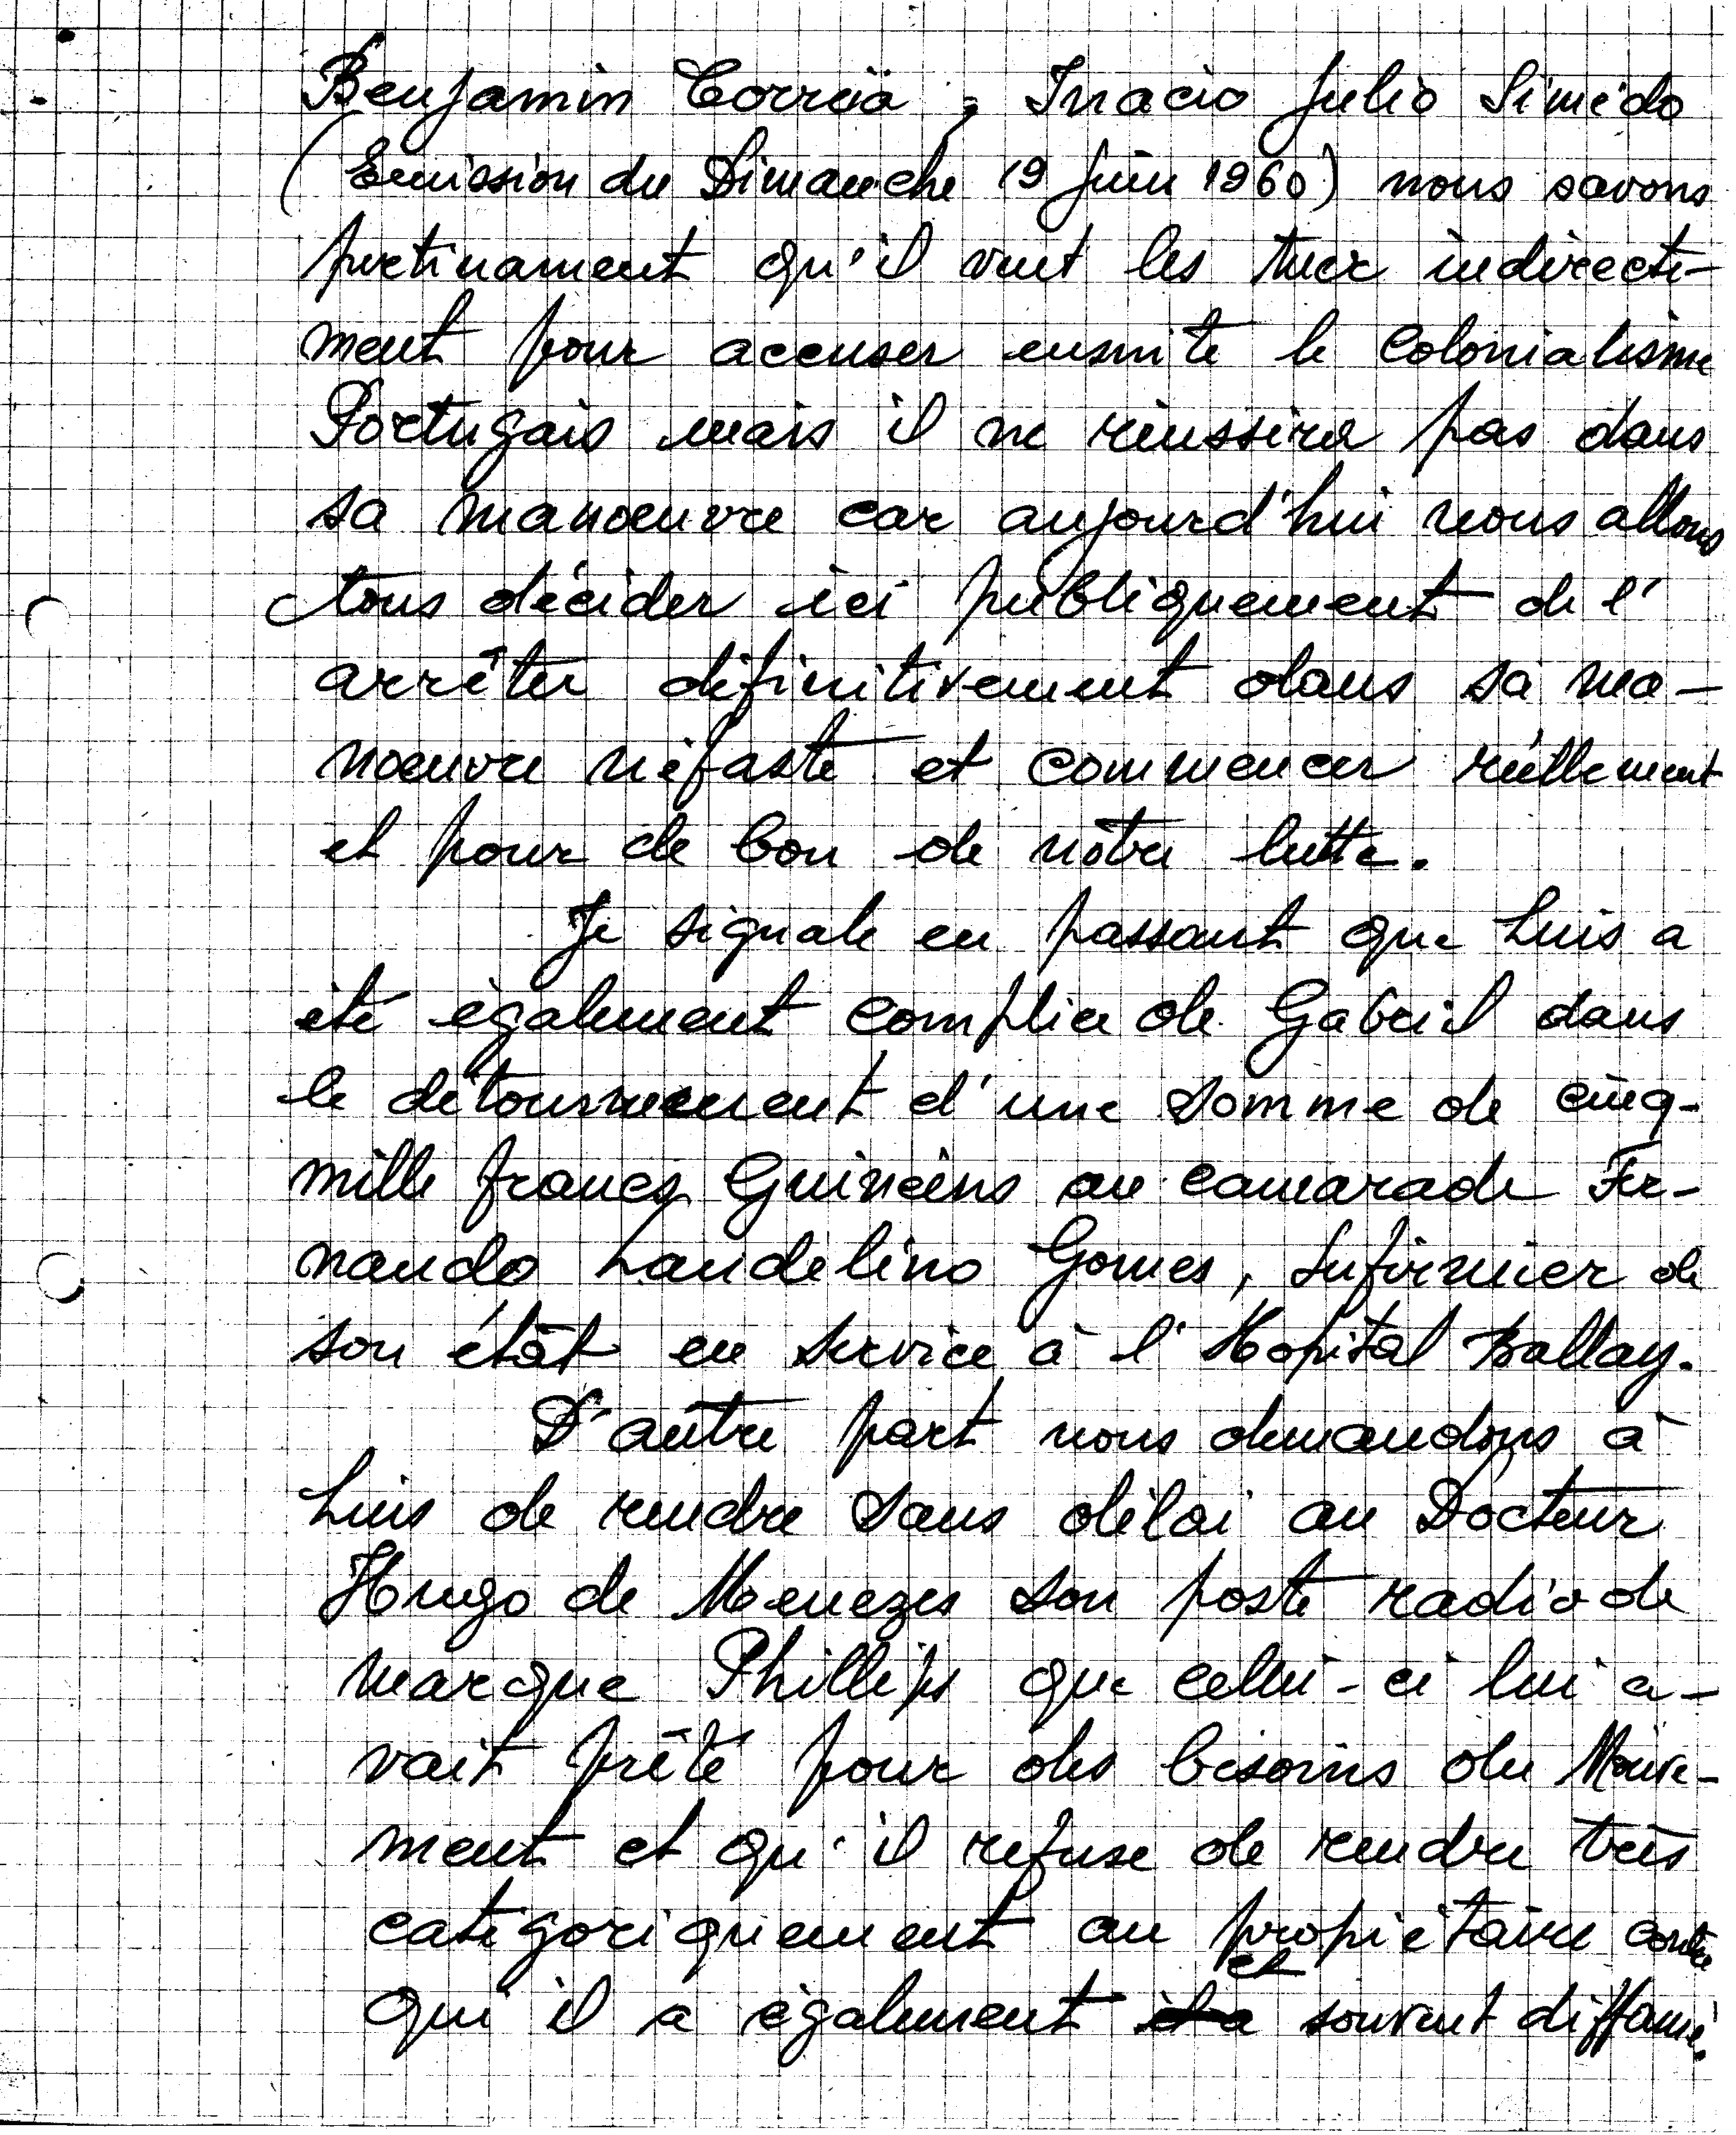 Benjamin Corréia, Inacio Julio Simédo
(Emission du Dimanche 19 Juin 1960) nous savons
pertinament qu'il veut les tuer indirecte-
ment pour accuser ensuite le Colonialisme
Portugais mais il ne réussira pas dans
sa manœuvre car aujourd'hui nous allons
tous décider ici publiquement de l'
arrêter définitivement dans sa ma-
nœuvre néfaste et commencer réellement
et pour de bon de nôtre lutte.
Je signale en passant que Luis a
été également complice de Gabriel dans
le détournement d'une somme de cinq-
mille francs Guinéens au camarade Fer-
nando Landelino Gomes, Infirmier de
son étât en service à l'Hopital Ballay.
D'autre part nous demandons à
Luis de rendre sans délai au Docteur
Hugo de Menezes son poste radio de
marque Phillips que celui-ci lui a-
vait prêté pour des besoins du Mouve-
ment et qu'il refuse de rendre très
catégoriquement au propiétaire contre
qui il a également et souvent diffamé.